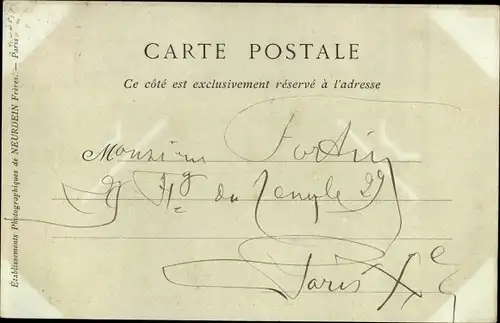 CARTE POSTALE
Ce côté est exclusivement réservé à l'adresse
Monsieur Fortin
du Temple 29
Paris Xe
Établissements Photographiques de NEURDEIN Frères. — Paris